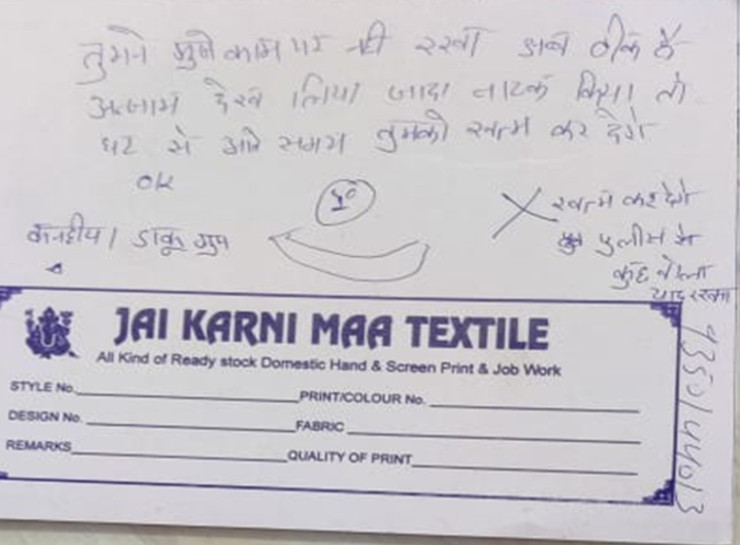 तुमने मुजे काम पर नही रखा अब ठीक है
अन्जाम देख लिया जादा नाटक किया तो
घर से आते समय तुमको खत्म कर देगे
ok
डाकू ग्रुप
खत्म कर देगे
पुलीस से
कुछ बोला
याद रखना
JAI KARNI MAA TEXTILE
All Kind of Ready stock Domestic Hand & Screen Print & Job Work
STYLE No. PRINT/COLOUR No.
DESIGN No. FABRIC
REMARKS QUALITY OF PRINT